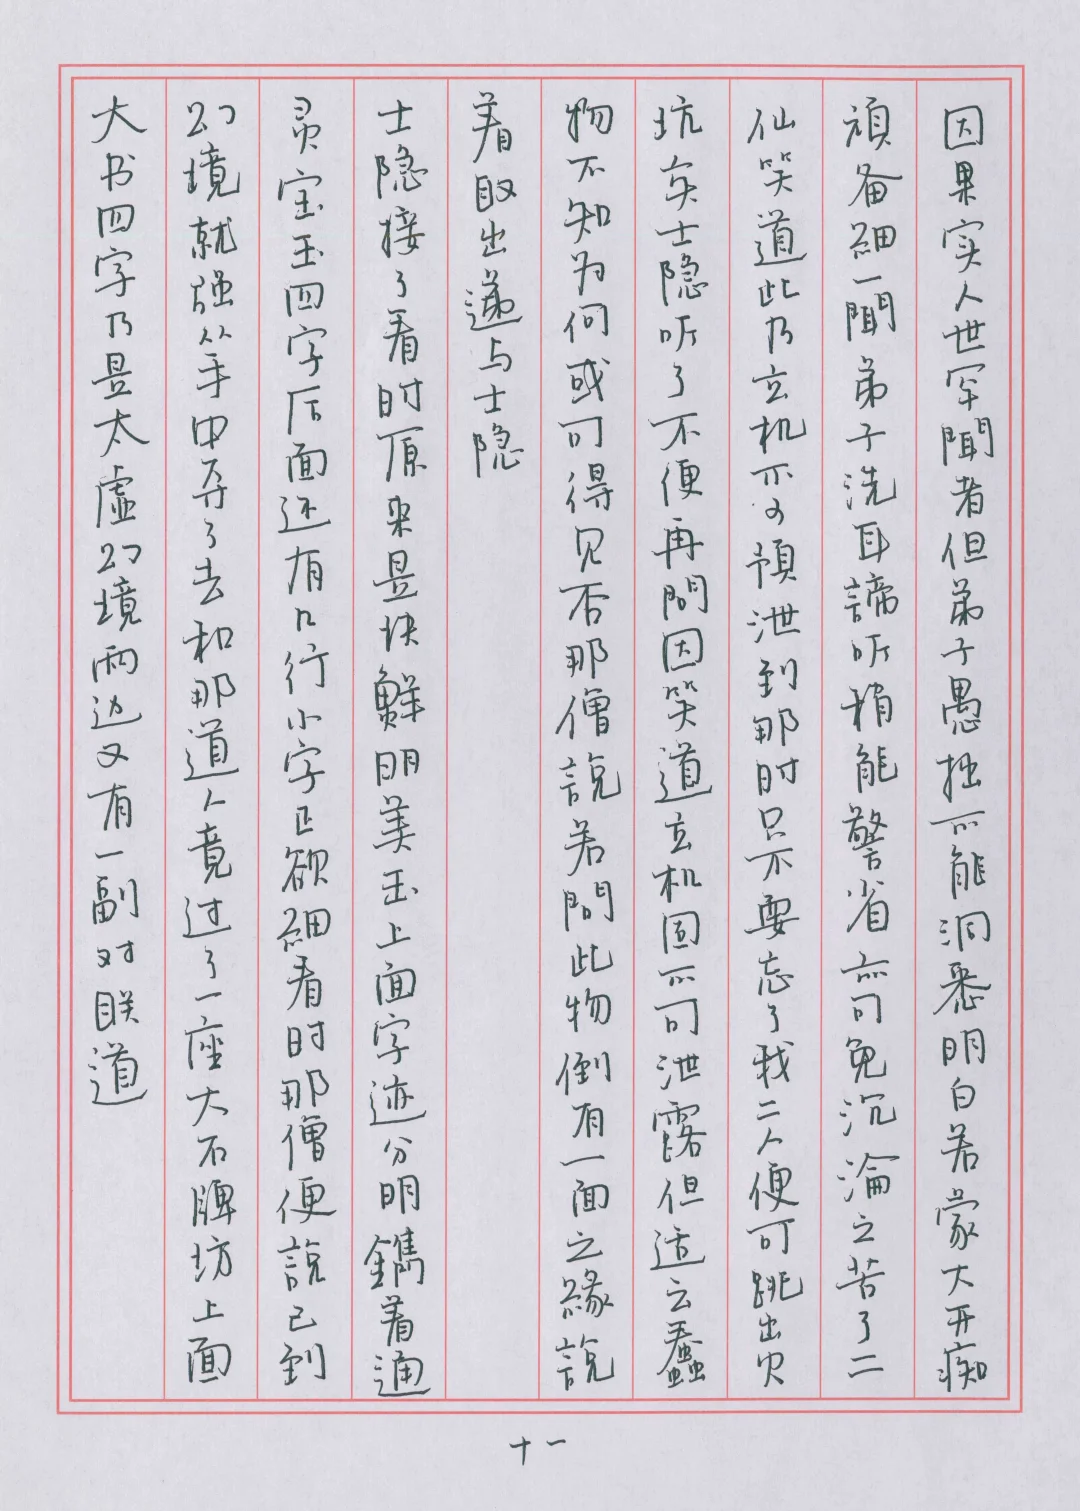 因果实人世罕聞者但弟子愚拙不能洞悉明白若蒙大开痴
頑备細一聞弟子洗耳諦听稍能警省亦可免沉淪之苦了二
仙笑道此乃玄机不可預泄到那时只不要忘了我二人便可跳出火
坑矣士隐听了不便再問因笑道玄机固不可泄露但适云蠢
物不知为何或可得见否那僧説若問此物倒有一面之緣説
着取出遞与士隐
士隐接了看时原来是块鮮明美玉上面字迹分明鐫着通
灵宝玉四字后面还有几行小字正欲細看时那僧便説已到
幻境就强从手中夺了去和那道人竟过了一座大石牌坊上面
大书四字乃是太虚幻境兩边又有一副对联道
十一